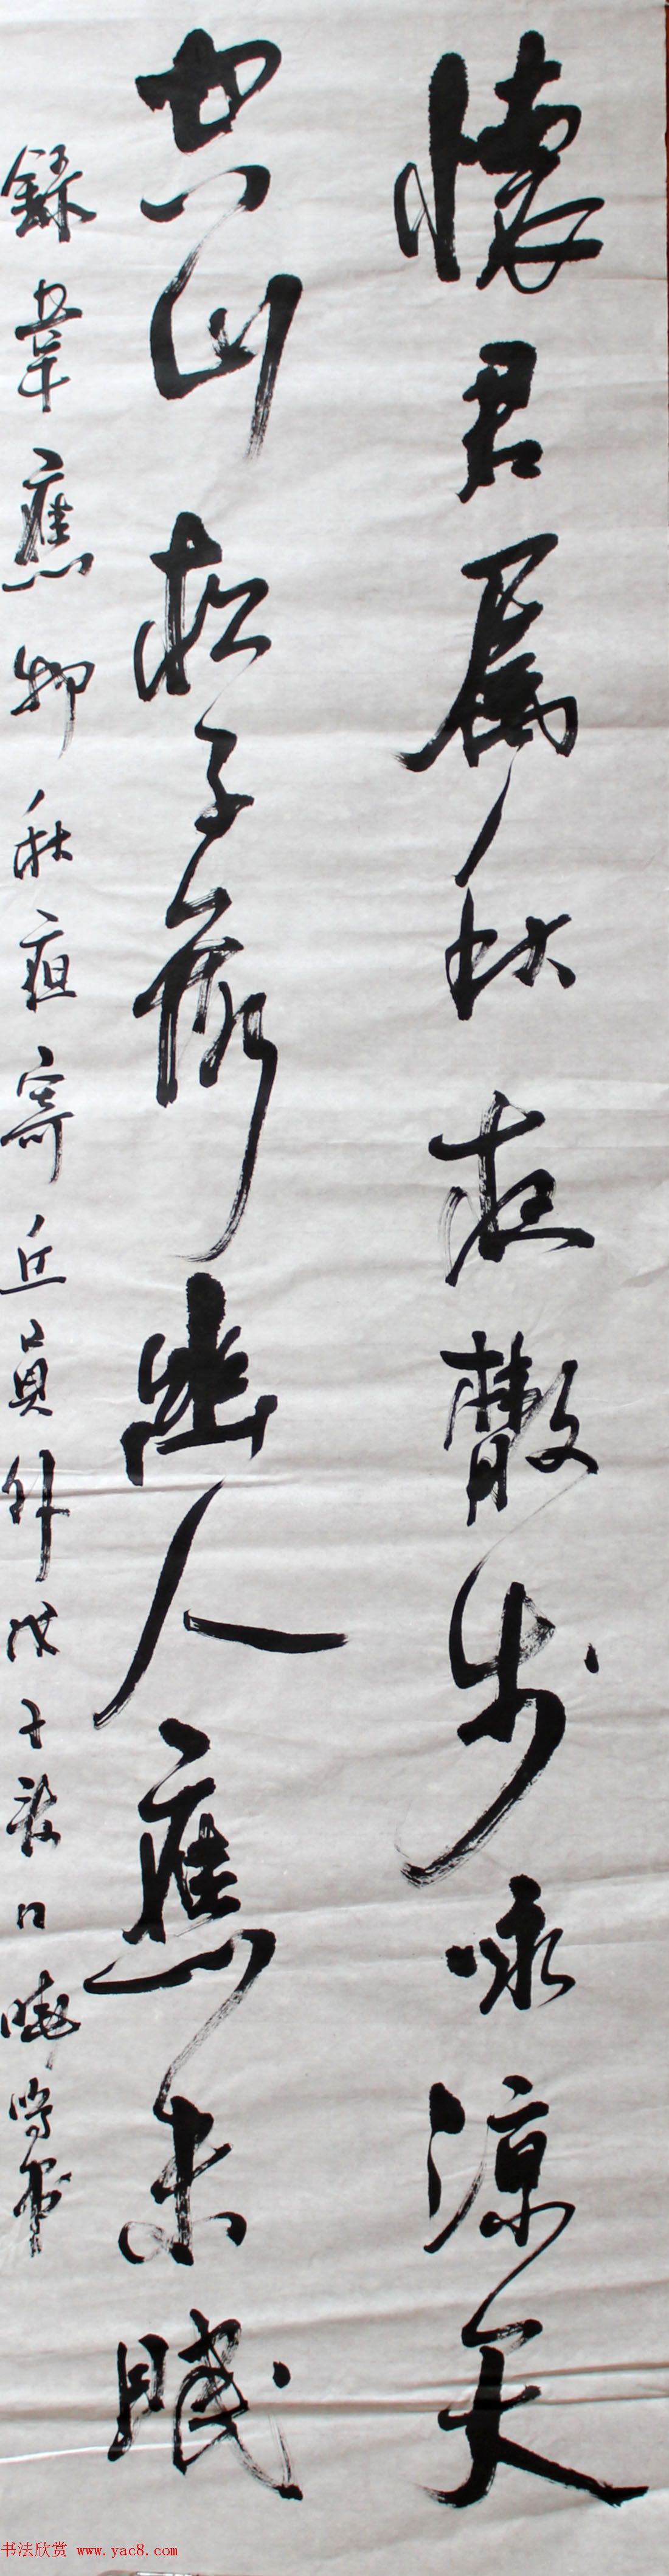 懷君屬秋夜散步咏涼天
空山松子落幽人應未眠
錄韋應物秋夜寄丘員外戊子夏日書
书法欣赏 www.yac8.com